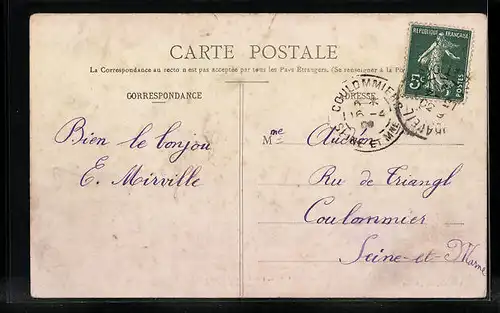 CARTE POSTALE
La Correspondance au recto n'est pas acceptée par tous les Pays Etrangers. (Se renseigner à la
CORRESPONDANCE
ADRESSE
RÉPUBLIQUE FRANÇAISE
5c
POSTES
COULOMMIERS
SEINE ET MNE
Bien le bonjou
E. Mirville
Mme
Rue de Triangl
Coulommier
Seine-et-Marne